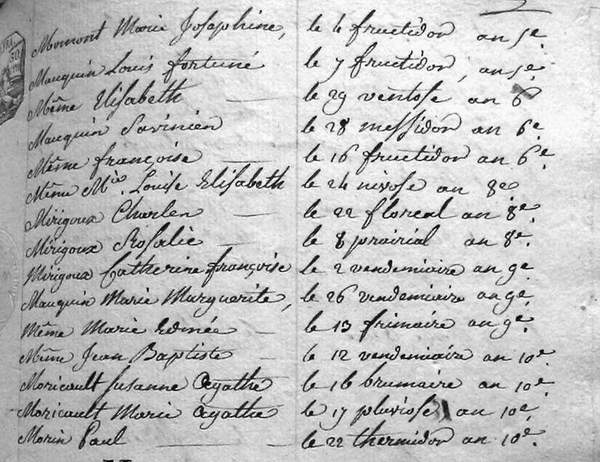 Momont Marie Josephine, le 4 fructidor an 5e.
Mauquin Louis fortuné le 7 fructidor, an 5e.
Même Elisabeth le 29 ventose an 6
Mauquin Savinien le 28 messidor an 6e.
Même françoise le 16 fructidor an 6e.
Même Mie. Louise Elisabeth le 24 nivose an 8e
Mérigoux Charles le 22 floreal an 8e.
Mérigoux Rosalie le 8 prairial an 8e.
Mérigoux Catherine françoise le 2 vendemiaire an 9e.
Mauquin Marie Marguerite, le 26 vendemiaire an 9e.
Même Marie Edmée le 13 frimaire an 9e.
Même Jean Baptiste le 12 vendemiaire an 10e.
Moricault Susanne Agathe le 16 brumaire an 10e.
Moricault Marie Agathe le 17 pluviose an 10e.
Morin Paul le 22 thermidor an 10e.